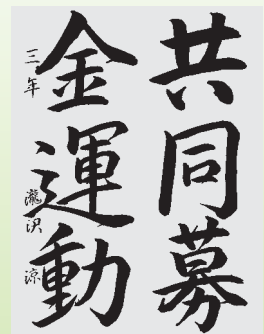 共同募
金運動
三年 瀧沢 涼